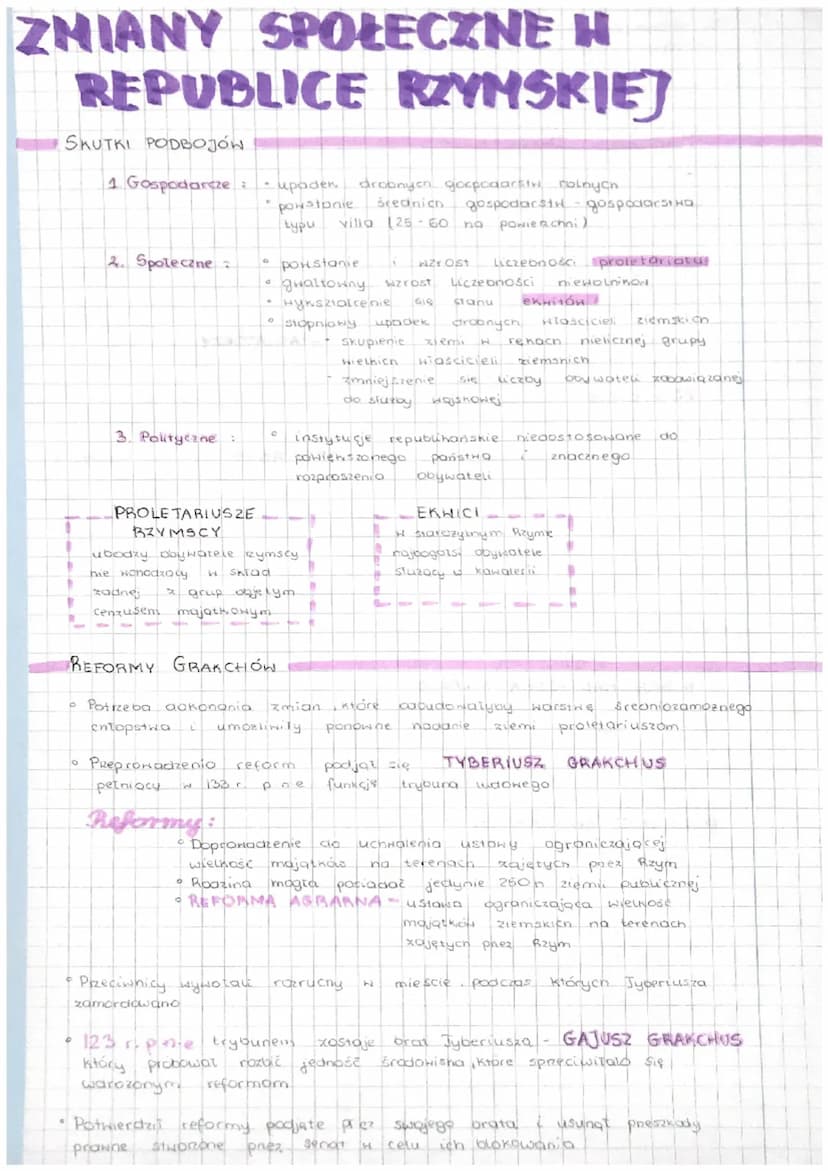 ZMIANY SPOŁECZNE W
REPUBLICE RZYMSKIEJ
SKUTKI PODBOJÓW
1. Gospodarcze : • upadek drobnych gospodarstw rolnych
• powstanie średnich gospodarstw - gospodarstwa
typu villa (25-60 ha powierzchni)
2. Społeczne : • powstanie i wzrost liczebności proletariatu
• gwałtowny wzrost liczebności niewolników
• wykształcenie się stanu ekwitów
• stopniowy upadek drobnych właścicieli ziemskich
- skupienie ziemi w rękach nielicznej grupy
wielkich właścicieli ziemskich
- zmniejszenie się liczby obywateli zobowiązanej
do służby wojskowej
3. Polityczne : • instytucje republikańskie niedostosowane do
powiększonego państwa i znacznego
rozproszenia obywateli
PROLETARIUSZE
RZYMSCY
ubodzy obywatele rzymscy
nie wchodzący w skład
żadnej z grup objętym
cenzusem majątkowym
EKWICI
w starożytnym Rzymie
najbogatsi obywatele
służący w kawalerii
REFORMY GRAKCHÓW
• Potrzeba dokonania zmian, które odbudowałyby warstwę średniozamożnego
chłopstwa i umożliwiły ponowne nadanie ziemi proletariuszom
• Przeprowadzenia reform podjął się TYBERIUSZ GRAKCHUS
pełniący w 133 r. p.n.e funkcję trybuna ludowego
Reformy:
• Doprowadzenie do uchwalenia ustawy ograniczającej
wielkość majątków na terenach zajętych przez Rzym
• Rodzina mogła posiadać jedynie 250 h ziemi publicznej
• REFORMA AGRARNA - ustawa ograniczająca wielkość
majątków ziemskich na terenach
zajętych przez Rzym
• Przeciwnicy wywołali rozruchy w mieście, podczas których Tyberiusza
zamordowano
• 123 r. p.n.e trybunem zostaje brat Tyberiusza - GAJUSZ GRAKCHUS
który próbował rozbić jedność środowiska, które sprzeciwiało się
wdrożonym reformom
• Potwierdził reformy podjęte przez swojego brata i usunął przeszkody
prawne stworzone przez senat w celu ich blokowania